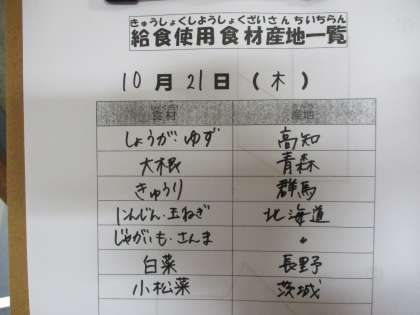 きゅうしょくしようしょくざいさんちいちらん
給食使用食材産地一覧
10月21日(木)
食材 産地
しょうが・ゆず 高知
大根 青森
きゅうり 群馬
にんじん・玉ねぎ 北海道
じゃがいも・さんま 〃
白菜 長野
小松菜 茨城